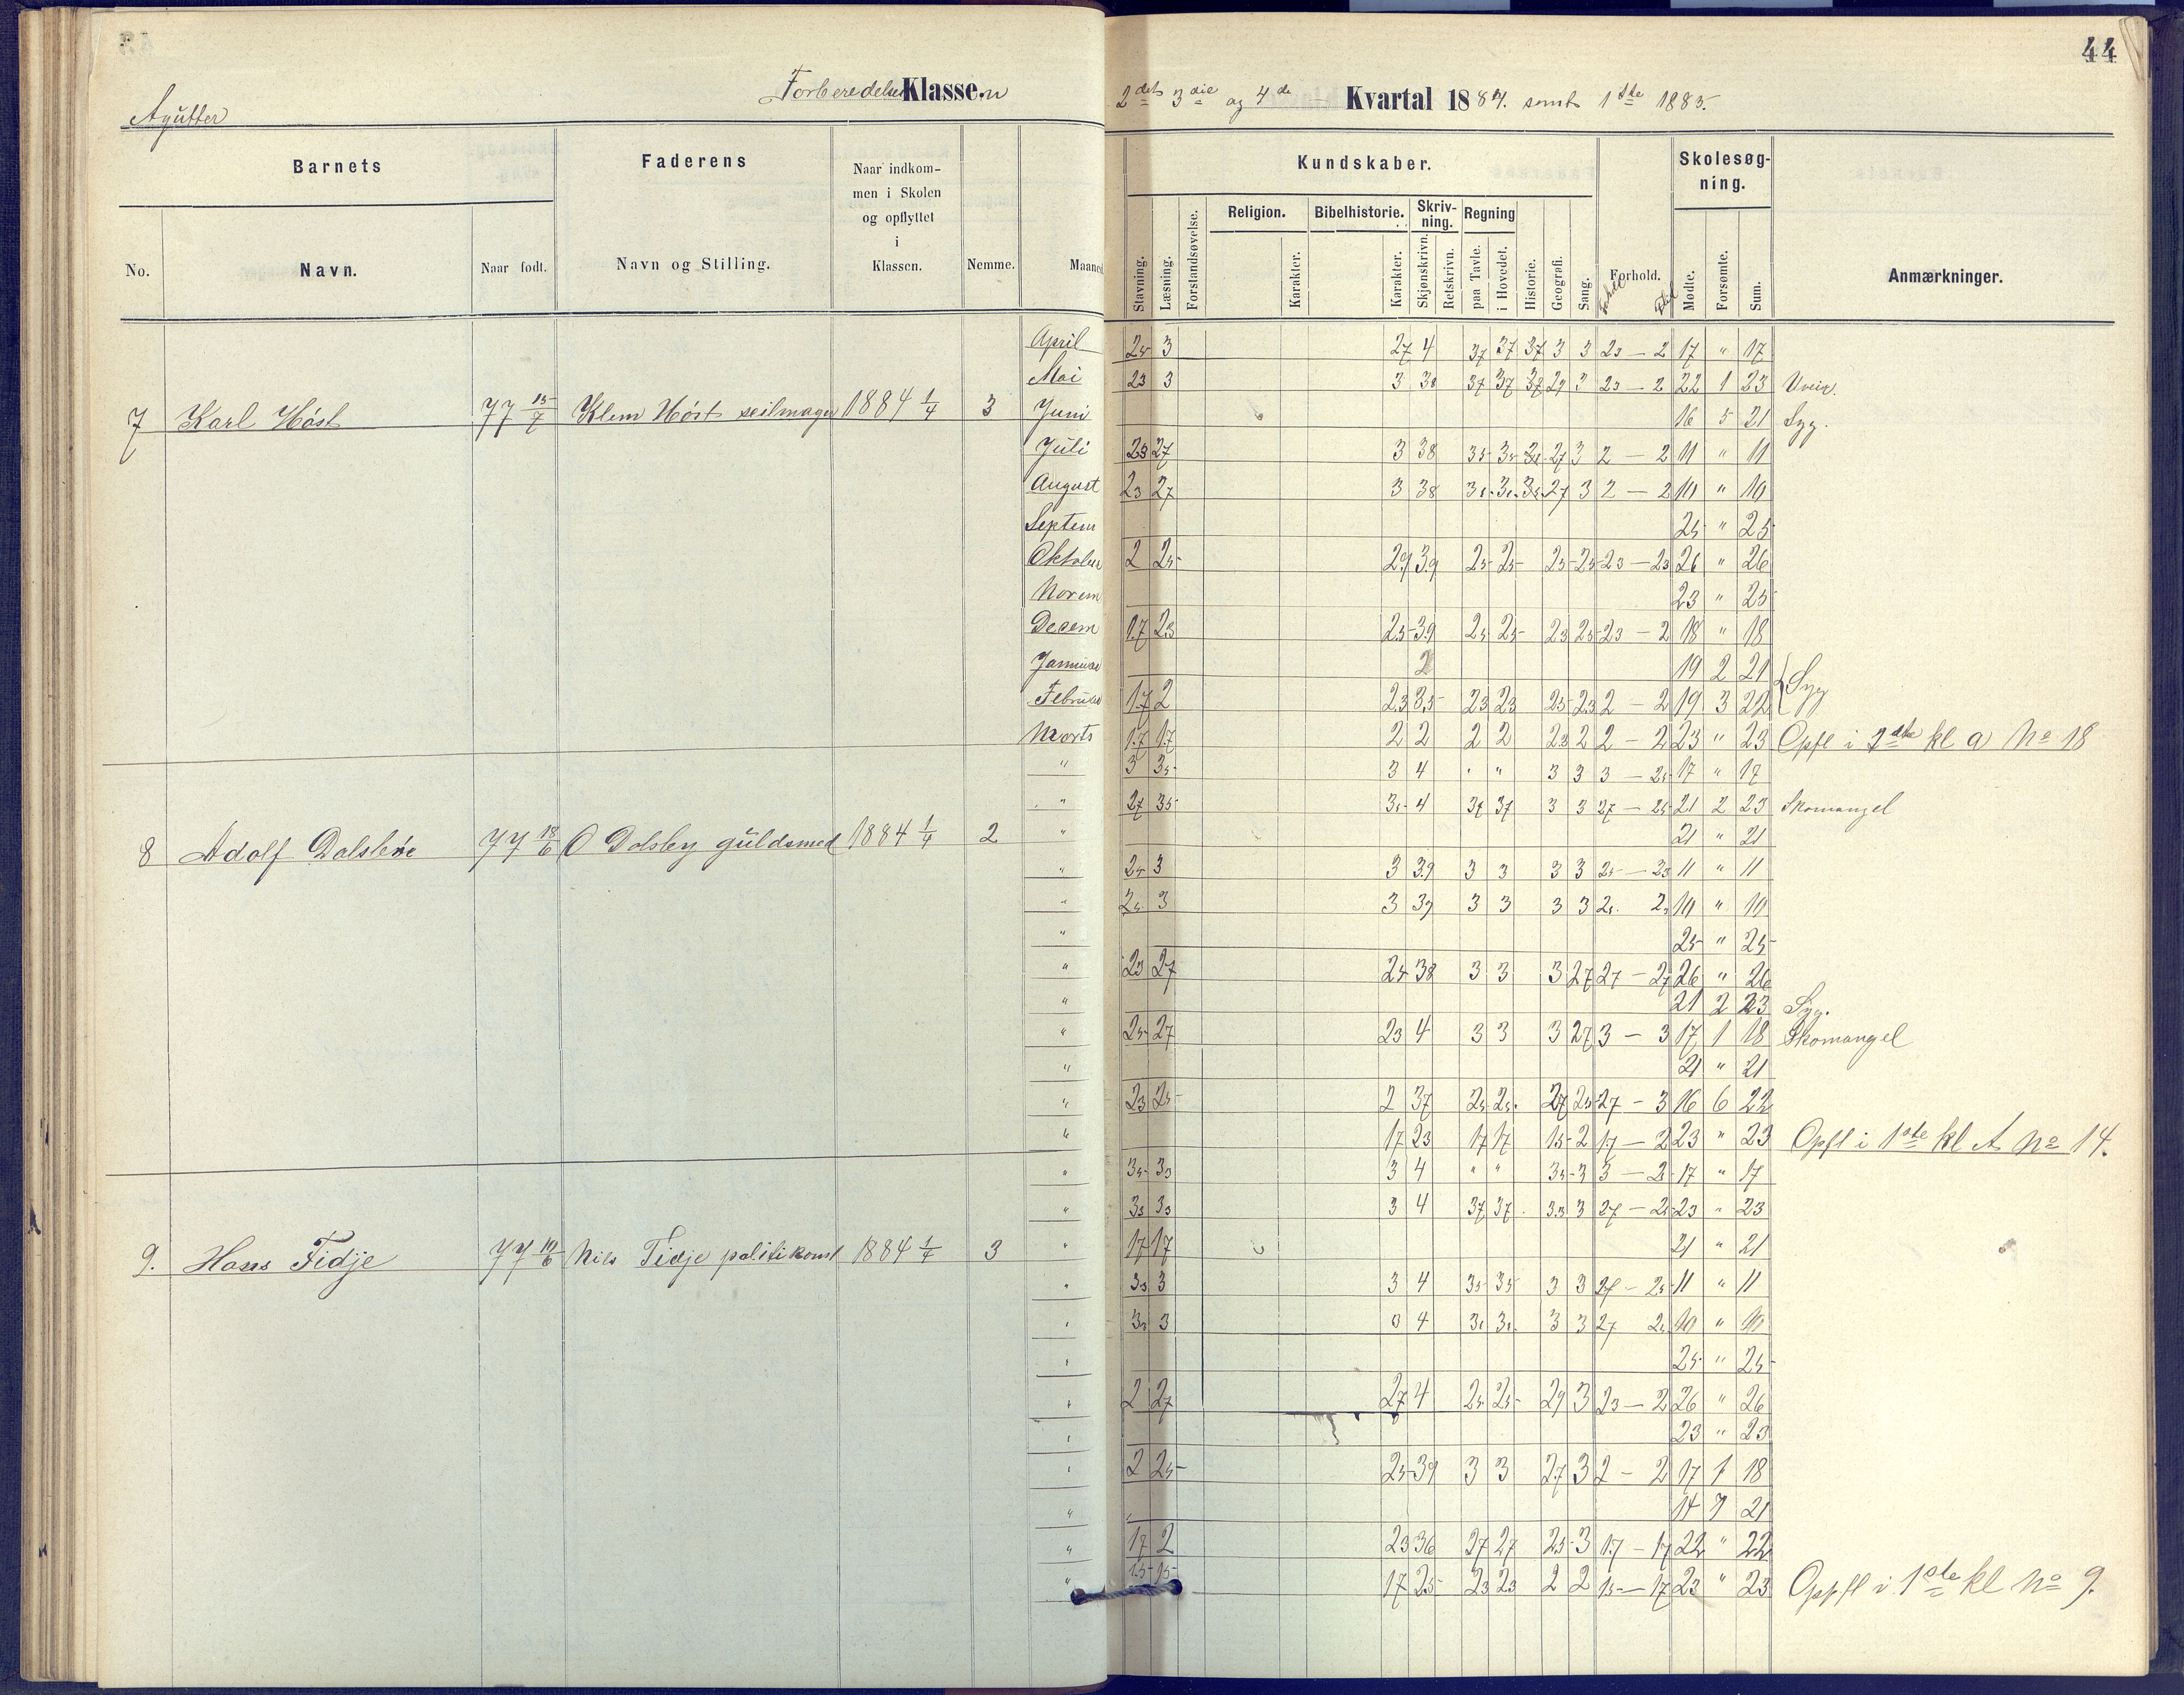 44
Forberedelses Klassen
2det 3die og 4de Kvartal 1884. samt 1ste 1885.
Barnets
Faderens
Naar indkommen i Skolen og opflyttet i Klassen.
Nemme.
Maaned
No.
Navn.
Naar født.
Navn og Stilling.
Kundskaber.
Skolesøgning.
Religion.
Bibelhistorie.
Skrivning.
Regning
Stavning.
Læsning.
Forstandsøvelse.
Karakter.
Karakter.
Skjønskrivn.
Retskrivn.
paa Tavle.
i Hovedet.
Historie.
Geografi.
Sang.
Forhold.
Mødte.
Forsømte.
Sum.
Anmærkninger.
April 25 3 27 4 37 37 37 3 3 23 — 2 17 " 17
Mai 23 3 3 38 37 37 37 27 3 23 — 2 22 1 23
7 Karl Høst 77 15/7 Klem Høst seilmager 1884 1/4 3 Juni 16 5 21 Syg.
Juli 23 27 3 38 35 35 27 3 2 — 2 11 " 11
August 23 27 3 38 27 3 2 — 2 10 " 10
Septem 25 " 25
Oktober 2 25 29 39 25 25 25 25 23 — 23 26 " 26
Novem 23 " 23
Decem 17 23 25 39 25 25 23 25 23 — 2 18 " 18
Januar 2 19 2 21
Februar 17 2 23 35 23 23 25 23 2 — 2 19 3 22 Syg
Marts 17 17 2 2 2 2 23 2 2 — 2 23 " 23 Opfl i 2den kl a No 18
" 3 35 3 4 " " 3 3 3 — 25 17 " 17
" 27 35 35 4 37 37 3 3 27 — 25 21 2 23 Skomangel
8 Adolf 77 18/6 O Dolsby guldsmed 1884 1/4 2 " 21 " 21
" 25 3 3 39 3 3 3 3 25 — 23 11 " 11
" 25 3 3 39 3 3 3 3 10 " 10
" 25 " 25
" 23 27 25 38 3 3 3 27 27 — 27 26 " 26
" 21 2 23 Syg.
" 25 27 23 4 3 3 3 27 3 — 3 17 1 18 Skomangel
" 21 " 21
" 23 25 2 37 25 25 27 25 27 — 3 16 6 22
" 17 23 17 17 15 2 17 — 2 23 " 23 Opfl i 1ste kl A No 14.
" 35 33 3 4 " " 35 3 3 — 2 17 " 17
" 33 33 3 4 37 37 33 3 27 — 25 23 " 23
9. Hans Fidje 77 10/6 Nils Fidje politikonst 1884 1/4 3 " 17 17 21 " 21
" 33 3 3 4 35 35 3 3 27 — 25 11 " 11
" 33 3 3 4 3 3 27 25 10 " 10
" 25 " 25
" 2 27 27 4 25 25 29 3 23 — 2 26 " 26
" 23 " 23
" 2 25 25 39 3 3 27 3 2 — 2 17 1 18
" 14 7 21
" 17 2 23 36 27 27 25 3 17 — 17 22 " 22
" 15 15 17 25 23 23 2 2 15 — 17 23 " 23 Oppfl i 1ste kl No 9.